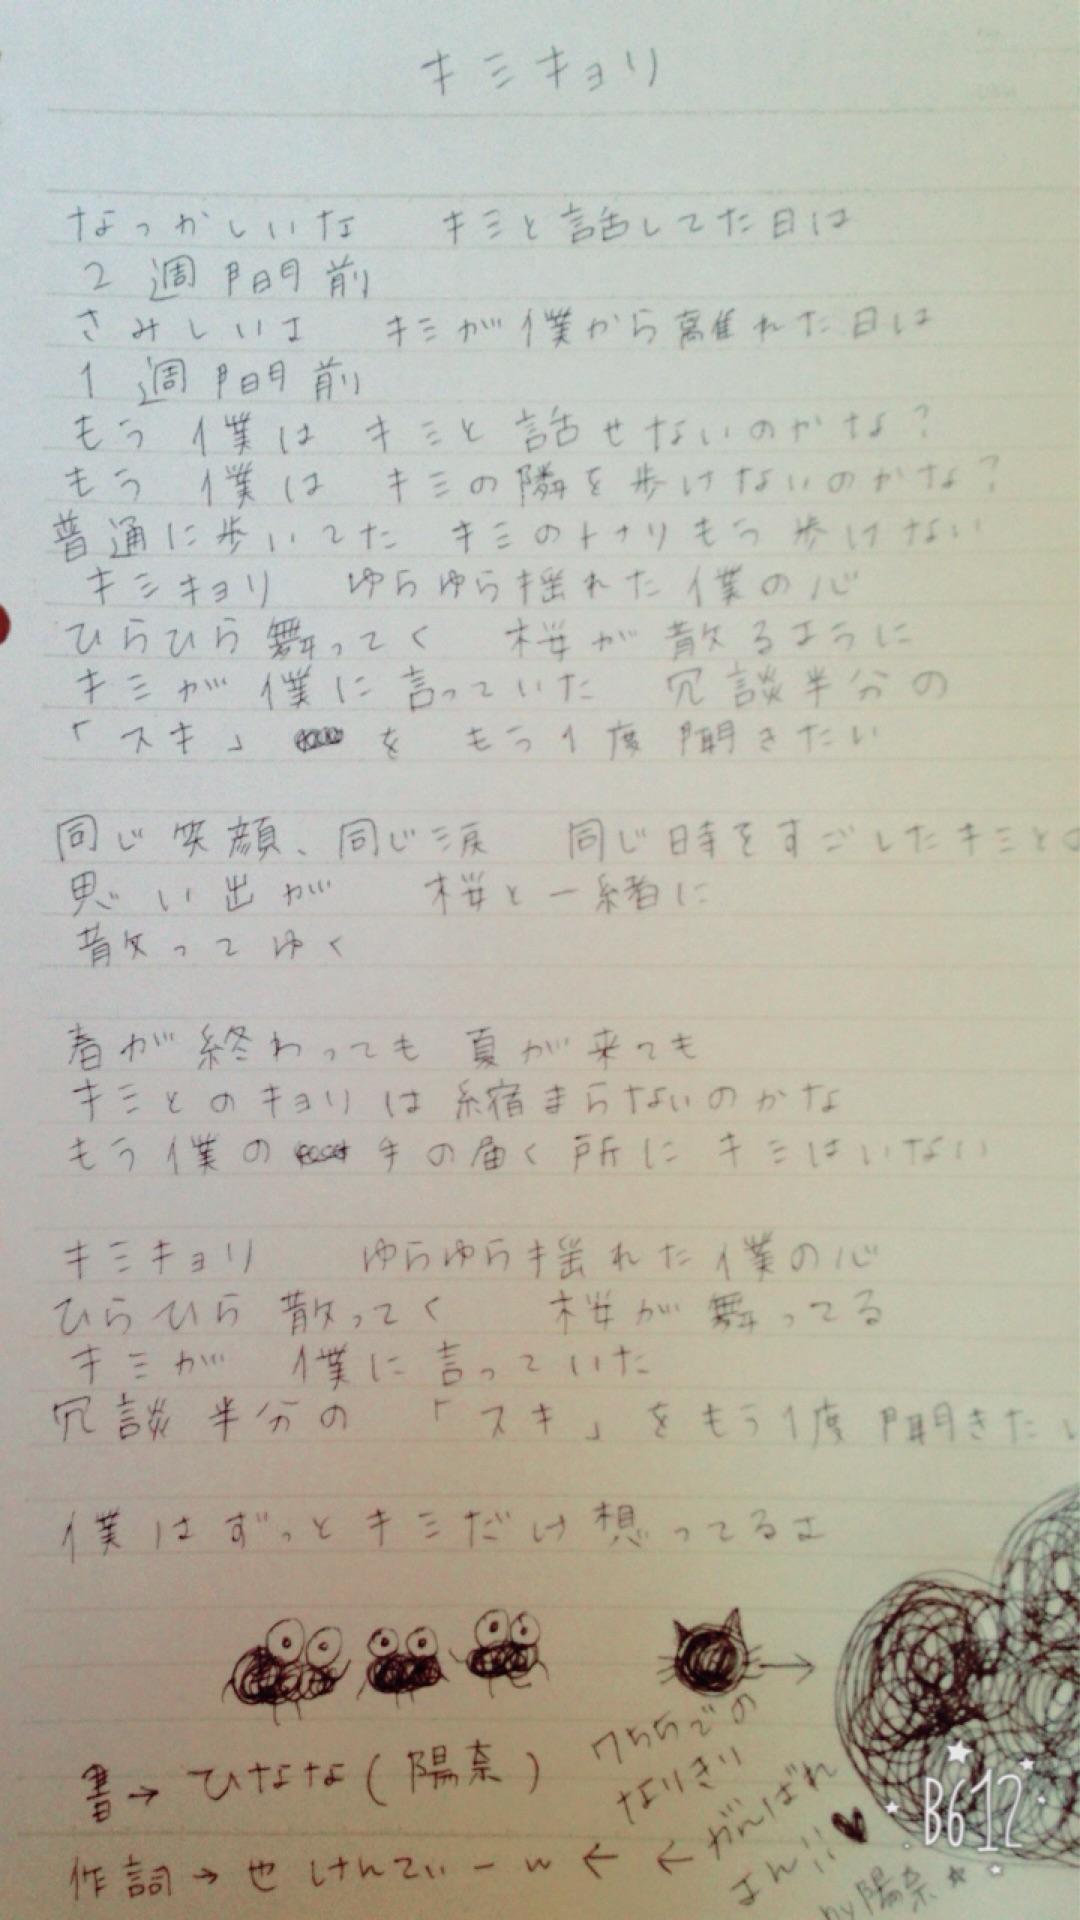 キミキョリ
なつかしいな キミと話してた日は
2週間前
さみしいよ キミが僕から離れた日は
1週間前
もう僕は キミと話せないのかな?
もう僕は キミの隣を歩けないのかな?
普通に歩いてた キミのトナリもう歩けない
キミキョリ ゆらゆら揺れた僕の心
ひらひら舞ってく 桜が散るように
キミが僕に言っていた 冗談半分の
「スキ」を もう1度聞きたい
同じ笑顔、同じ涙 同じ時をすごしたキミとの
思い出が 桜と一緒に
散ってゆく
春が終わっても 夏が来ても
キミとのキョリは縮まらないのかな
もう僕の手の届く所に キミはいない
キミキョリ ゆらゆら揺れた僕の心
ひらひら散ってく 桜が舞ってる
キミが 僕に言っていた
冗談半分の 「スキ」をもう1度聞きたい
僕はずっとキミだけ想ってるよ
書→ひなな(陽奈)
作詞→也けんてぃーw← ←
なりきり
がんばれ
よん!!♥
by陽奈☆
B612